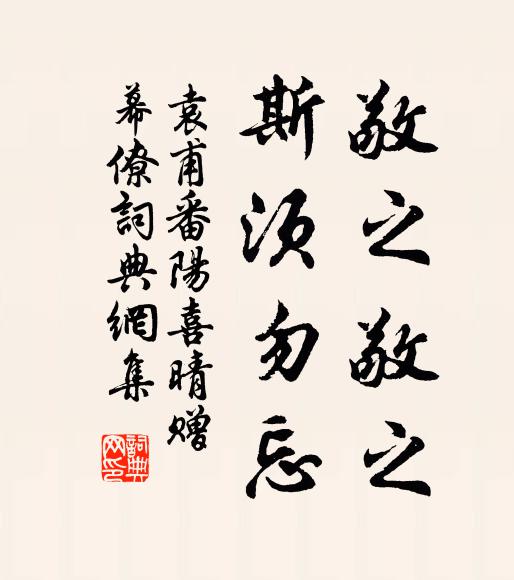 敬之敬之
斯须勿忘
袁甫番陽喜晴赠
幕僚詞典網集
詞典
网印